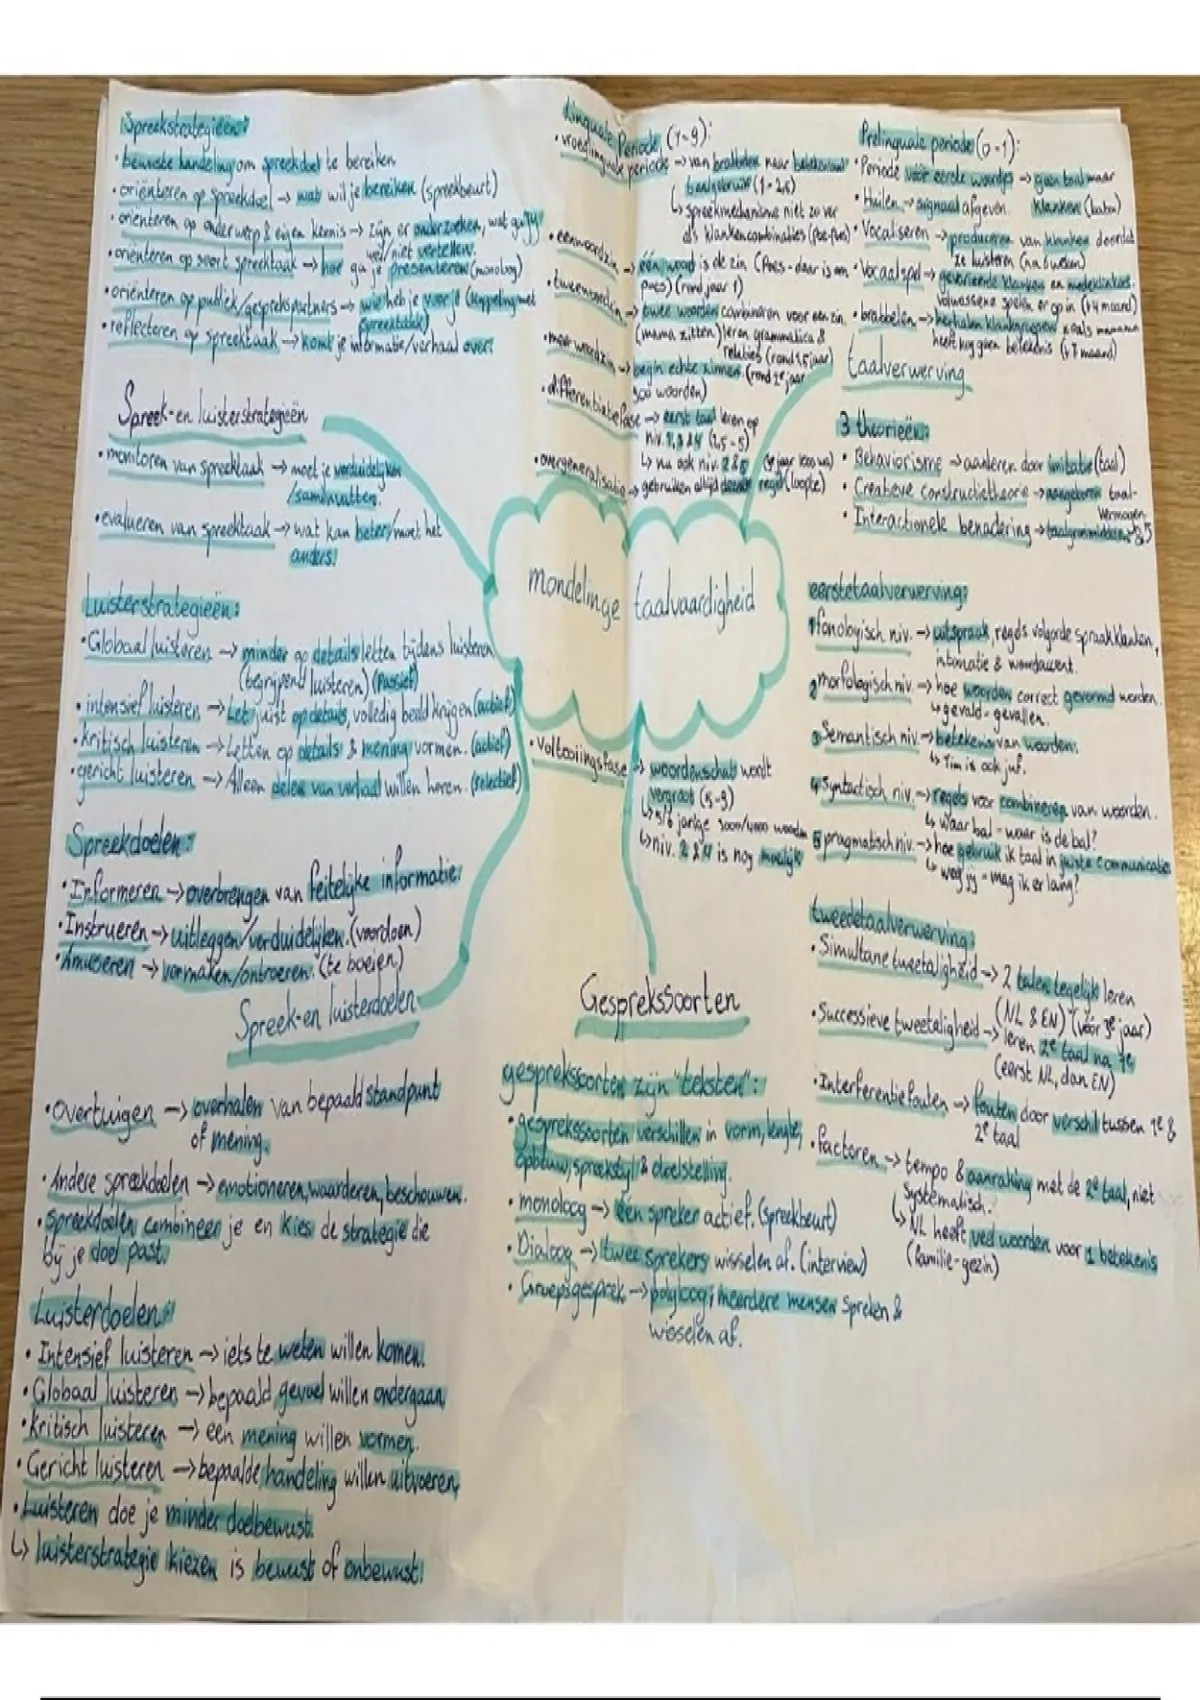 Spreekstrategieën:
• bewuste handeling om spreekdoel te bereiken
• oriënteren op spreekdoel → wat wil je bereiken (spreekbeurt)
• oriënteren op onderwerp & eigen kennis → zijn er onderzoeken, wat ga jij
wel/niet vertellen.
• oriënteren op soort spreektaak → hoe ga je presenteren (monoloog)
• oriënteren op publiek/gesprekspartners → wie heb je voor je (koppeling met
spreektaak)
• reflecteren op spreektaak → komt je informatie/verhaal over?
Spreek- en luisterstrategieën
• monitoren van spreektaak → moet je verduidelijken
/samenvatten.
• evalueren van spreektaak → wat kan beter/moet het
anders?
Luisterstrategieën:
• Globaal luisteren → minder op details letten tijdens luisteren
(begrijpend luisteren) (passief)
• intensief luisteren → Let juist op details, volledig beeld krijgen (actief)
• kritisch luisteren → Letten op details & mening vormen. (actief)
• gericht luisteren → Alleen delen van verhaal willen horen. (selectief)
Spreekdoelen:
• Informeren → overbrengen van feitelijke informatie.
• Instrueren → uitleggen/verduidelijken. (voordoen)
• Amuseren → vermaken/ontroeren. (te boeien)
Spreek- en luisterdoelen
• overtuigen → overhalen van bepaald standpunt
of mening.
• Andere spreekdoelen → emotioneren, waarderen, beschouwen.
• Spreekdoelen combineer je en kies de strategie die
bij je doel past.
Luisterdoelen:
• Intensief luisteren → iets te weten willen komen.
• Globaal luisteren → bepaald gevoel willen ondergaan.
• kritisch luisteren → een mening willen vormen.
• Gericht luisteren → bepaalde handeling willen uitvoeren.
• Luisteren doe je minder doelbewust.
↳ luisterstrategie kiezen is bewust of onbewust!
mondelinge taalvaardigheid
Linguale Periode (1-9):
• vroeglinguale periode → van brabbelen naar
taalgebruik (1-2,5)
↳ spreekmechanisme niet zo ver
als klankencombinaties (poe-poes)
• eenwoordzin → één woord is de zin (Poes - daar is een
poes) (rond jaar 1)
• tweewoordzin → twee woorden combineren voor een zin.
(mama zitten) leren grammatica &
relaties (rond 1,5 jaar)
• meerwoordzin → begin echte zinnen. (rond 2e jaar
300 woorden)
• differentiatiefase → eerst taal leren op
niv. 1, 3 & 4 (2,5 - 5)
↳ nu ook niv. 2 & 5
• overgeneralisatie → gebruiken altijd dezelfde regel (loopte)
• Voltooiingsfase → woordenschat wordt
vergroot (5-9)
↳ 5/6 jarige 3000/4000 woorden
↳ niv. 2 & 4 is nog moeilijk
Gesprekssoorten
gesprekssoorten zijn "teksten":
• gesprekssoorten verschillen in vorm, lengte,
opbouw, spreekstijl & doelstelling.
• monoloog → één spreker actief. (spreekbeurt)
• Dialoog → twee sprekers wisselen af. (interview)
• Groepsgesprek → polyloog; meerdere mensen spreken &
wisselen af.
Prelinguale periode (0-1):
• Periode vóór eerste woordjes → geen taal maar
klanken (baba)
• Huilen → signaal afgeven.
• Vocaliseren → produceren van klanken doordat
ze luisteren (na 6 weken)
• Vocaalspel → gevarieerde klanken en medeklinkers.
volwassene spelen er op in (±4 maand)
• brabbelen → herhalen klankgroepen zoals mamama
heeft nog geen betekenis (±7 maand)
taalverwerving
3 theorieën:
• Behaviorisme → aanleren door imitatie (taal)
• Creatieve constructietheorie → aangeboren taal-
vermogen
• Interactionele benadering →
eerstetaalverwerving:
1 fonologisch niv. → uitspraak, regels volgorde spraakklanken,
intonatie & woordaccent.
2 morfologisch niv. → hoe woorden correct gevormd worden.
↳ gevald - gevallen.
3 Semantisch niv. → betekenis van woorden.
↳ Tim is ook juf.
4 Syntactisch niv. → regels voor combineren van woorden.
↳ Waar bal - waar is de bal?
5 pragmatisch niv. → hoe gebruik ik taal in juiste communicatie
↳ weg jij - mag ik er langs?
tweedetaalverwerving:
• Simultane tweetaligheid → 2 talen tegelijk leren
(NL & EN) (vóór 3e jaar)
• Successieve tweetaligheid → leren 2e taal na 1e
(eerst NL, dan EN)
• Interferentiefouten → fouten door verschil tussen 1e &
2e taal
• factoren → tempo & aanraking met de 2e taal, niet
Systematisch.
↳ NL heeft veel woorden voor 1 betekenis
(familie-gezin)